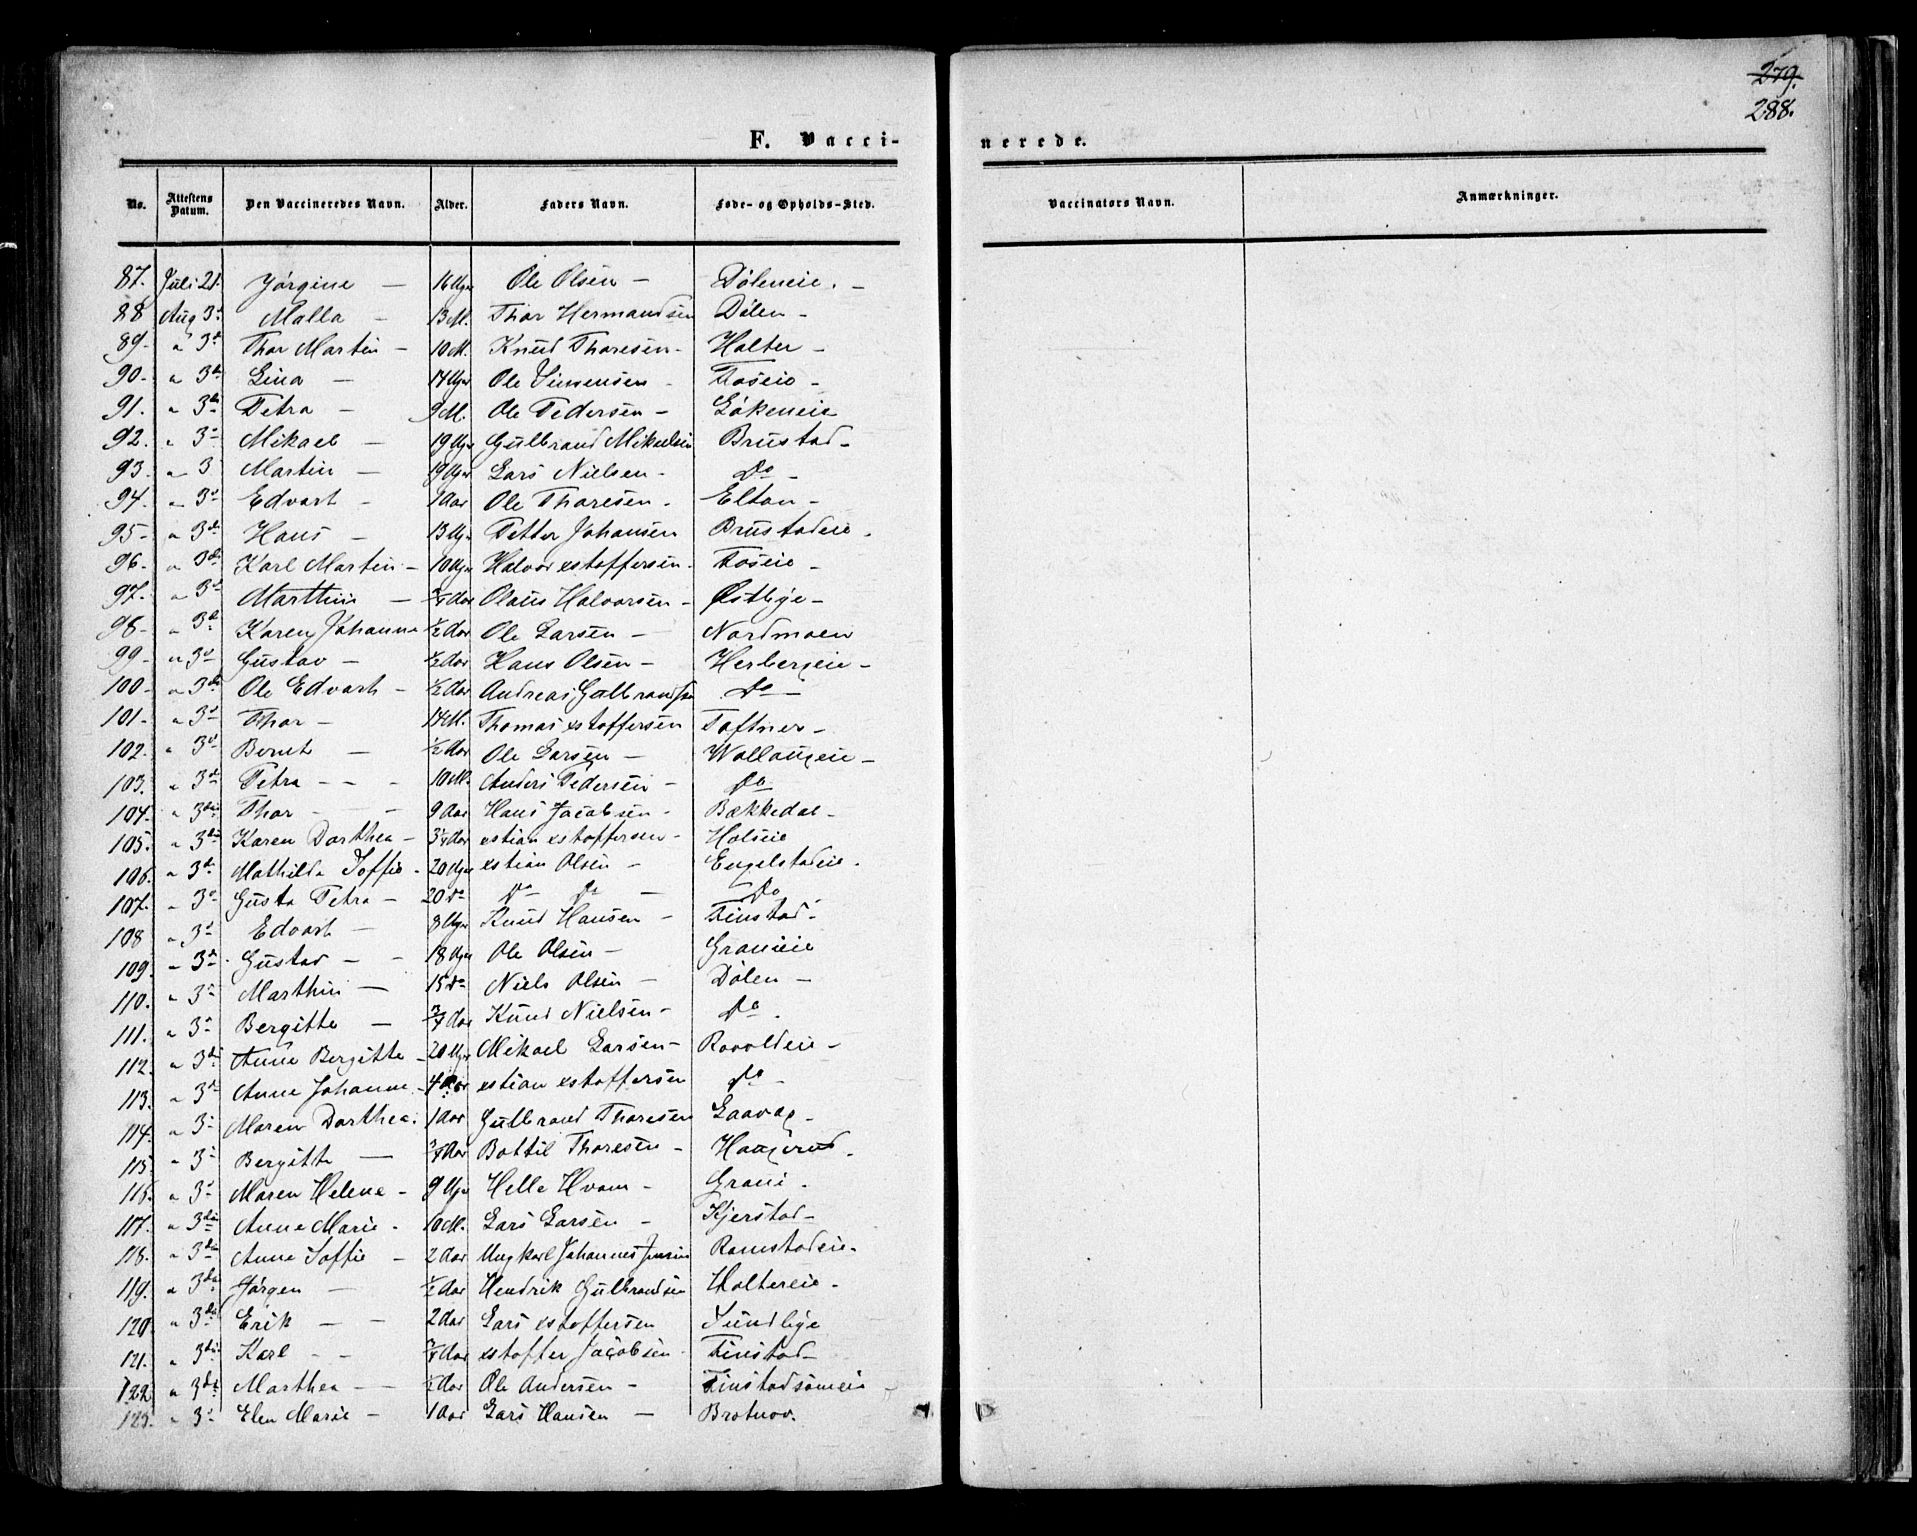 279.
288.
F. Vacci-
nerede.
No. Attestens Datum. Den Vaccineredes Navn. Alder. Faders Navn. Føde- og Opholds-Sted. Vaccinators Navn. Anmærkninger.
87. Juli 21. Jørgine — 16 Uger Ole Olsen — Døleneie. —
88 Aug 3d Malla — 13 M. Thor Hermandsen Dølen —
89. " 3d Thor Martin — 10 M. Knud Thoresen — Holter —
90. " 3d Lina — 14 Uger Ole Simensen — Foseie —
91. " 3d Petra — 9 M. Ole Pedersen — Løkeneie
92. " 3d Mikael — 19 Uger Gulbrand Mikaelsen Brustad —
93. " 3 Martin — 19 Uger Lars Nielsen — Do —
94. " 3d Edvart — 1 Aar Ole Thoresen — Eltan —
95 — " 3di Hans — 13 Ug. Petter Johansen Brustadeie.
96. " 3di Karl Martin — 10 Uger Halvor xstoffersen — Foseie —
97. " 3d Marthin — Aar Olaus Halvorsen — Østlige —
98. " 3d Karen Johanne 1/2 Aar Ole Larsen — Nordmoen
99 — " 3d Gustav — 1/2 Aar Hans Olsen — Herbergeie —
100. " 3di Ole Edvart — 1/2 Aar Andreas Gulbrandsen Do —
101. " 3d Thor — 14 M. Thomas xstoffersen Toftner —
102. " 3d Bernt — 1/2 Aar Ole Larsen — Wollaugeie —
103. " 3d Petra — — 10 M. Anders Pedersen — Do
104. " 3die Thor — — 9 Aar Hans Jacobsen — Bækkedal —
105. " 3di Karen Dorthea — 3 1/4 Aar xstian xstoffersen — Holseie
106. " 3d Mathilda Soffie — 20 Uger xstian Olsen — Engelstadeie.
107. " 3d Gusta Petra — 20 Do Do Do — Do
108 " 3d Edvart — 8 Uger Knud Hansen — Finstad —
109. " 3d Gustav — — 18 Uger Ole Olsen — Granieie
110. " 3d Marthin — 15 Do Niels Olsen — Dølen —
111. " 3d Bergitte — Aar Knud Nielsen — Do.
112. " 3di Anne Bergitte — 20 Uger Mikael Larsen — Rovoldeie —
113. " 3d Anne Johanne — 4 Aar xstian xstoffersen Do —
114. " 3d Maren Dorthea. 1 Aar Gulbrand Thoresen Laavag —
115. " 3d Bergitte — Aar Bottil Thoresen — Haugerud.
116. " 3d Maren Helene — 9 Uger Helle Hvam — Grani —
117. " 3die Anne Marie — 10 M. Lars Larsen — Kjerstad —
118. " 3die Anne Soffie — 2 Aar Ungkarl Johannes Jensen Ramstadeie —
119. " 3die Jørgen — 1/2 Aar Hendrik Gulbrandsen Holtereie —
120. " 3die Erik — — 2 Aar Lars xstoffersen Sundlige
121. " 3di Karl — — Aar xstoffer Jacobsen — Finstad —
122 " 3di Marthea — 1/2 Aar Ole Andersen — Finstadsømeie —
123. " 3d Elen Marie — 1 Aar Lars Hansen — Brotnov.